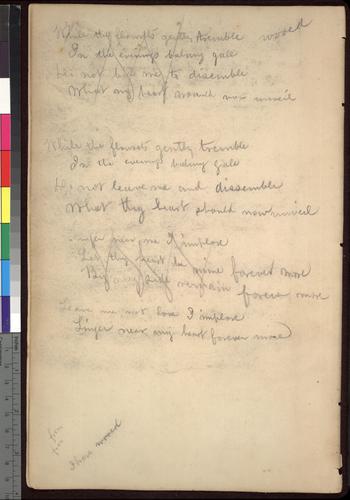 While thy flowrets gently tremble wooed
In the evenings balmy gale
Do not bid me to disemble
What my heart would now unveil
While the flowrets gently tremble
In the evenings balmy gale
Do not leave me and dissemble
What thy heart should now unveil
Linger near me I implore
Let thy heart be mine forever more
By my side remain forever more
Leave me not love I implore
Linger near my heart forever more
from
for
I have wooed